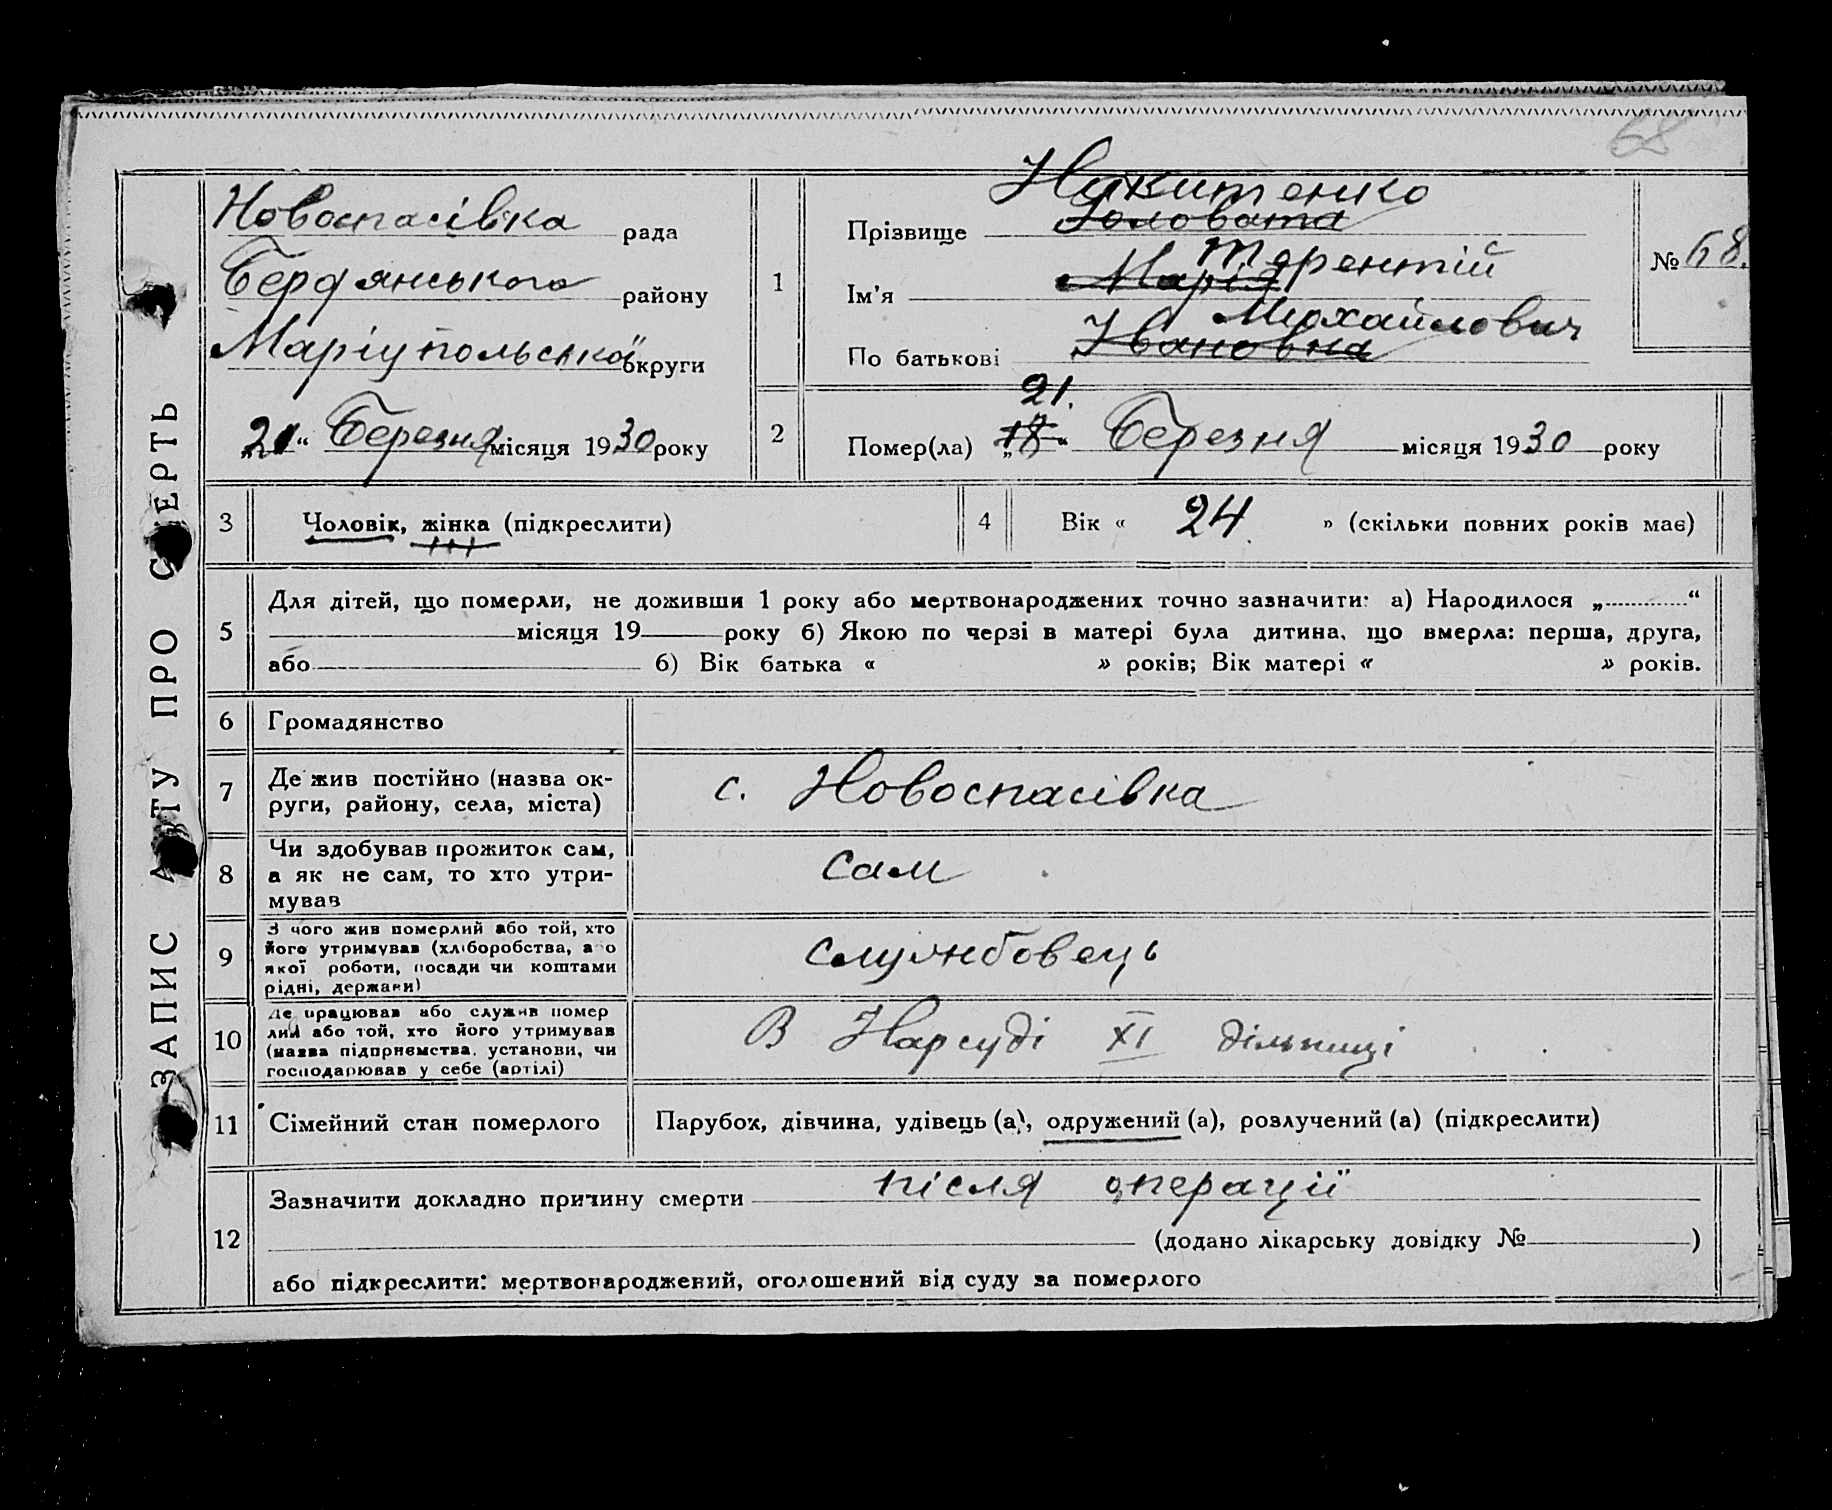 68
ЗАПИС АКТУ ПРО СМЕРТЬ
Новоспасівка рада
Бердянського району
Маріупольської округи
„21“ Березня місяця 1930 року
1
Никитенко
Прізвище Головата
Терентій
Ім'я Марія
Михайлович
По батькові Івановна
№ 68.
2
21.
Помер(ла) „18“ Березня місяця 1930 року
3 Чоловік, жінка (підкреслити)
4 Вік « 24 » (скільки повних років має)
5 Для дітей, що померли, не доживши 1 року або мертвонароджених точно зазначити: а) Народилося „ “
місяця 19 року б) Якою по черзі в матері була дитина, що вмерла: перша, друга,
або б) Вік батька « » років; Вік матері « » років.
6 Громадянство
7 Де жив постійно (назва ок-
руги, району, села, міста)
с. Новоспасівка
8 Чи здобував прожиток сам,
а як не сам, то хто утри-
мував
сам
9 З чого жив померлий або той, хто
його утримував (хліборобства, або
якої роботи, посади чи коштами
рідні, держави)
службовець
10 Де працював або служив помер
лий або той, хто його утримував
(назва підприємства, установи, чи
господарював у себе (артілі)
В Нарсуді XI дільниці
11 Сімейний стан померлого
Парубок, дівчина, удівець (а), одружений (а), розлучений (а) (підкреслити)
12 Зазначити докладно причину смерти після операції
(додано лікарську довідку № )
або підкреслити: мертвонароджений, оголошений від суду за померлого